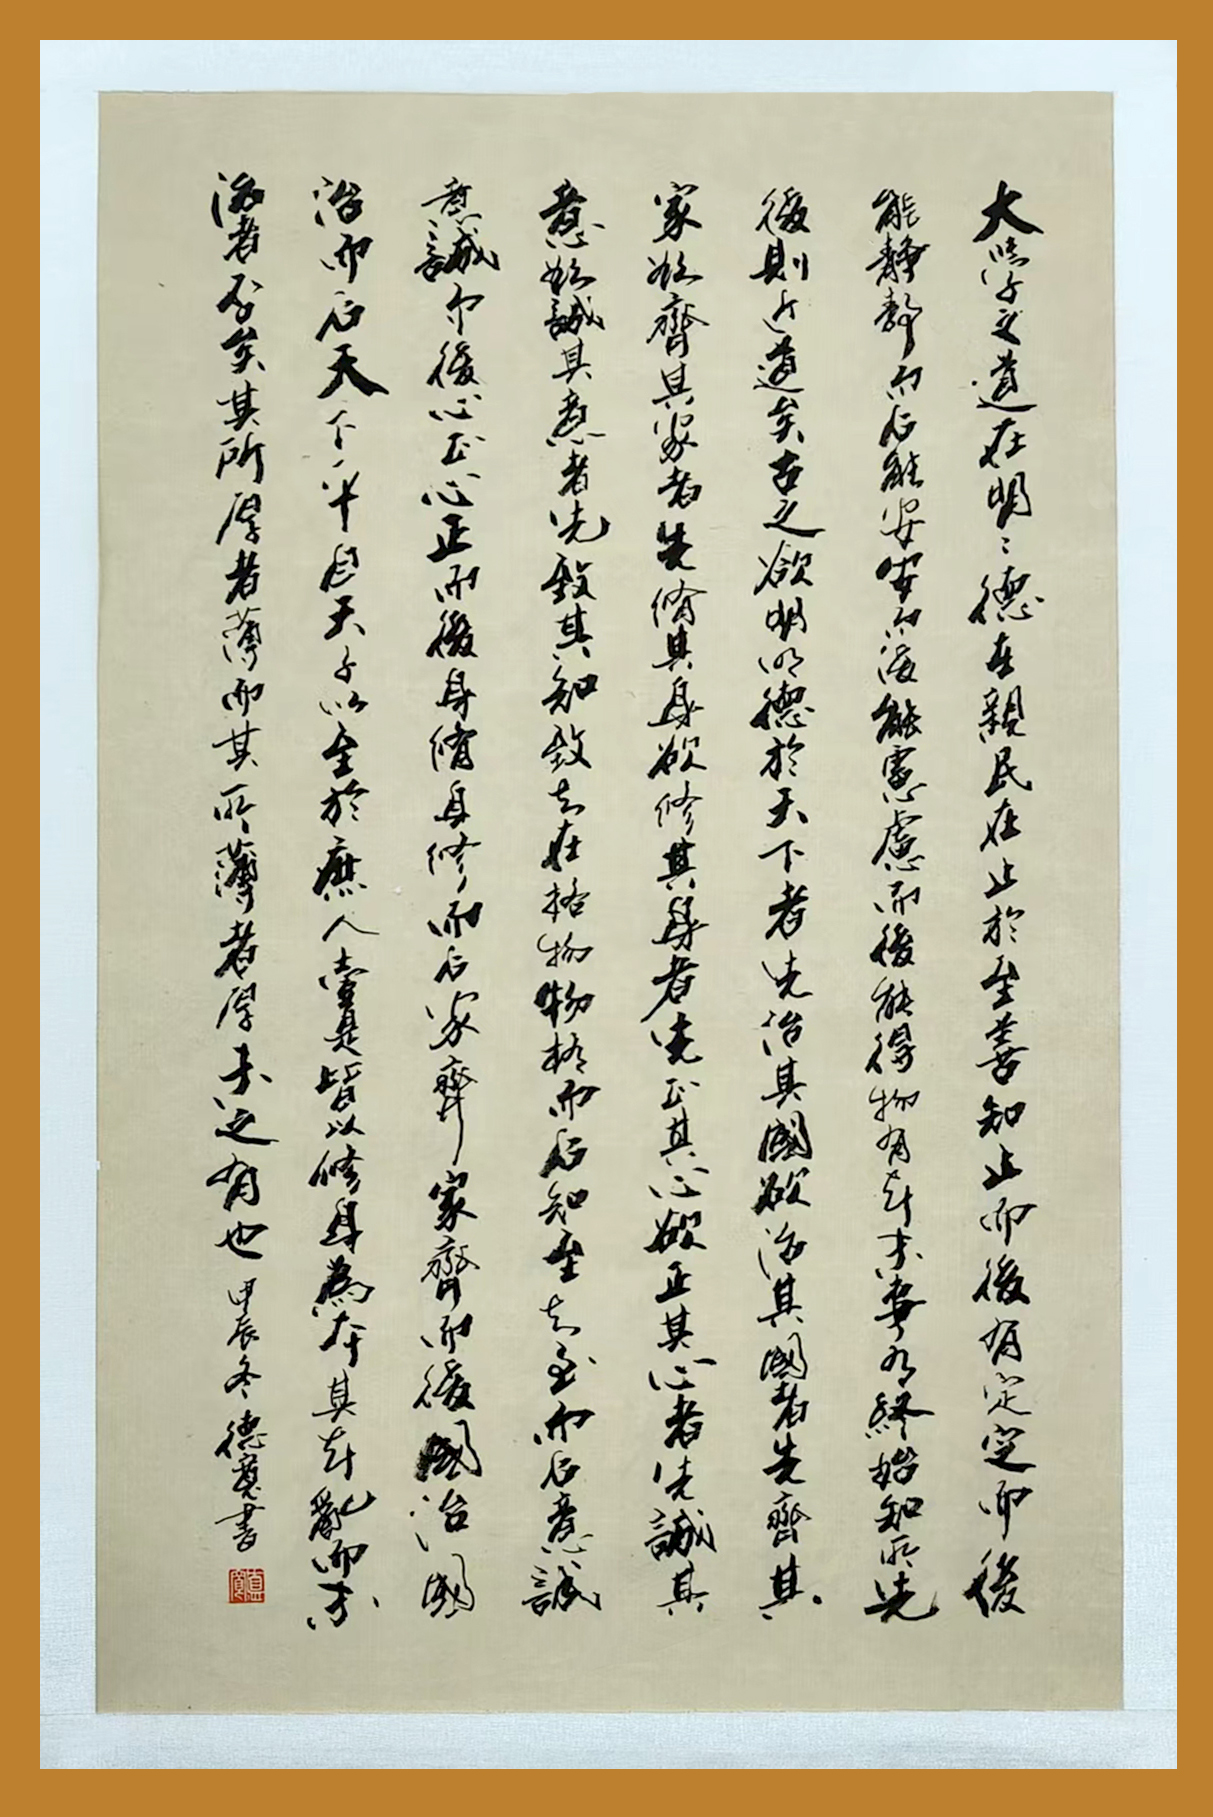 大學之道在明明德在親民在止於至善知止而後有定定而後
能靜靜而后能安安而後能慮慮而後能得物有本末事有終始知所先
後則近道矣古之欲明明德於天下者先治其國欲治其國者先齊其
家欲齊其家者先脩其身欲修其身者先正其心欲正其心者先誠其
意欲誠其意者先致其知致知在格物物格而后知至知至而后意誠
意誠而後心正心正而後身脩身修而后家齊家齊而後國治國
治而后天下平自天子以至於庶人壹是皆以修身為本其本亂而末
治者否矣其所厚者薄而其所薄者厚未之有也
甲辰冬德寬書